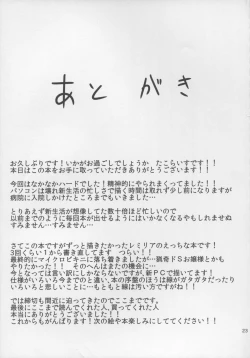 あとがき
お久しぶりです！いかがお過ごしでしょうか たこらいすです！！
本日はこの本をお手に取っていただきありがとうございます！！
今回はなかなかハードでした！精神的にやられまくってました！
パソコンは壊れ新生活の忙しさで描く時間は取れず少し前になりますが
病院に入院しかけたところまでもいきました…
とりあえず新生活が想像してた数十倍ほど忙しいので
以前のように毎回本が出せるようにはいかなくなるやもしれませぬ
すみません…すみません…
さてこの本ですがずっと描きたかったレミリアのえっちな本です！
3回くらい1から書き直してます つらい！！
最終的にマイクロビキニに落ち着きましたが…猟奇ドSお嬢様とか
もやりたかったです！！ そのへんはまたの機会に…
今となっては言い訳にしかならないですが、新PCで描いてます！
仕様がいろいろ今までと違ったため、本の序盤のほうは線がガタガタだったり
いろいろと悲しいことに…もっと線は汚い方ですがね！
では締切も間近に迫ってきたのでこのへんで…
最後にここまで読んでくれた人、買ってくれた人
本当にありがとうございます！
これからもがんばります！次の絵や本楽しみにしてください！
23